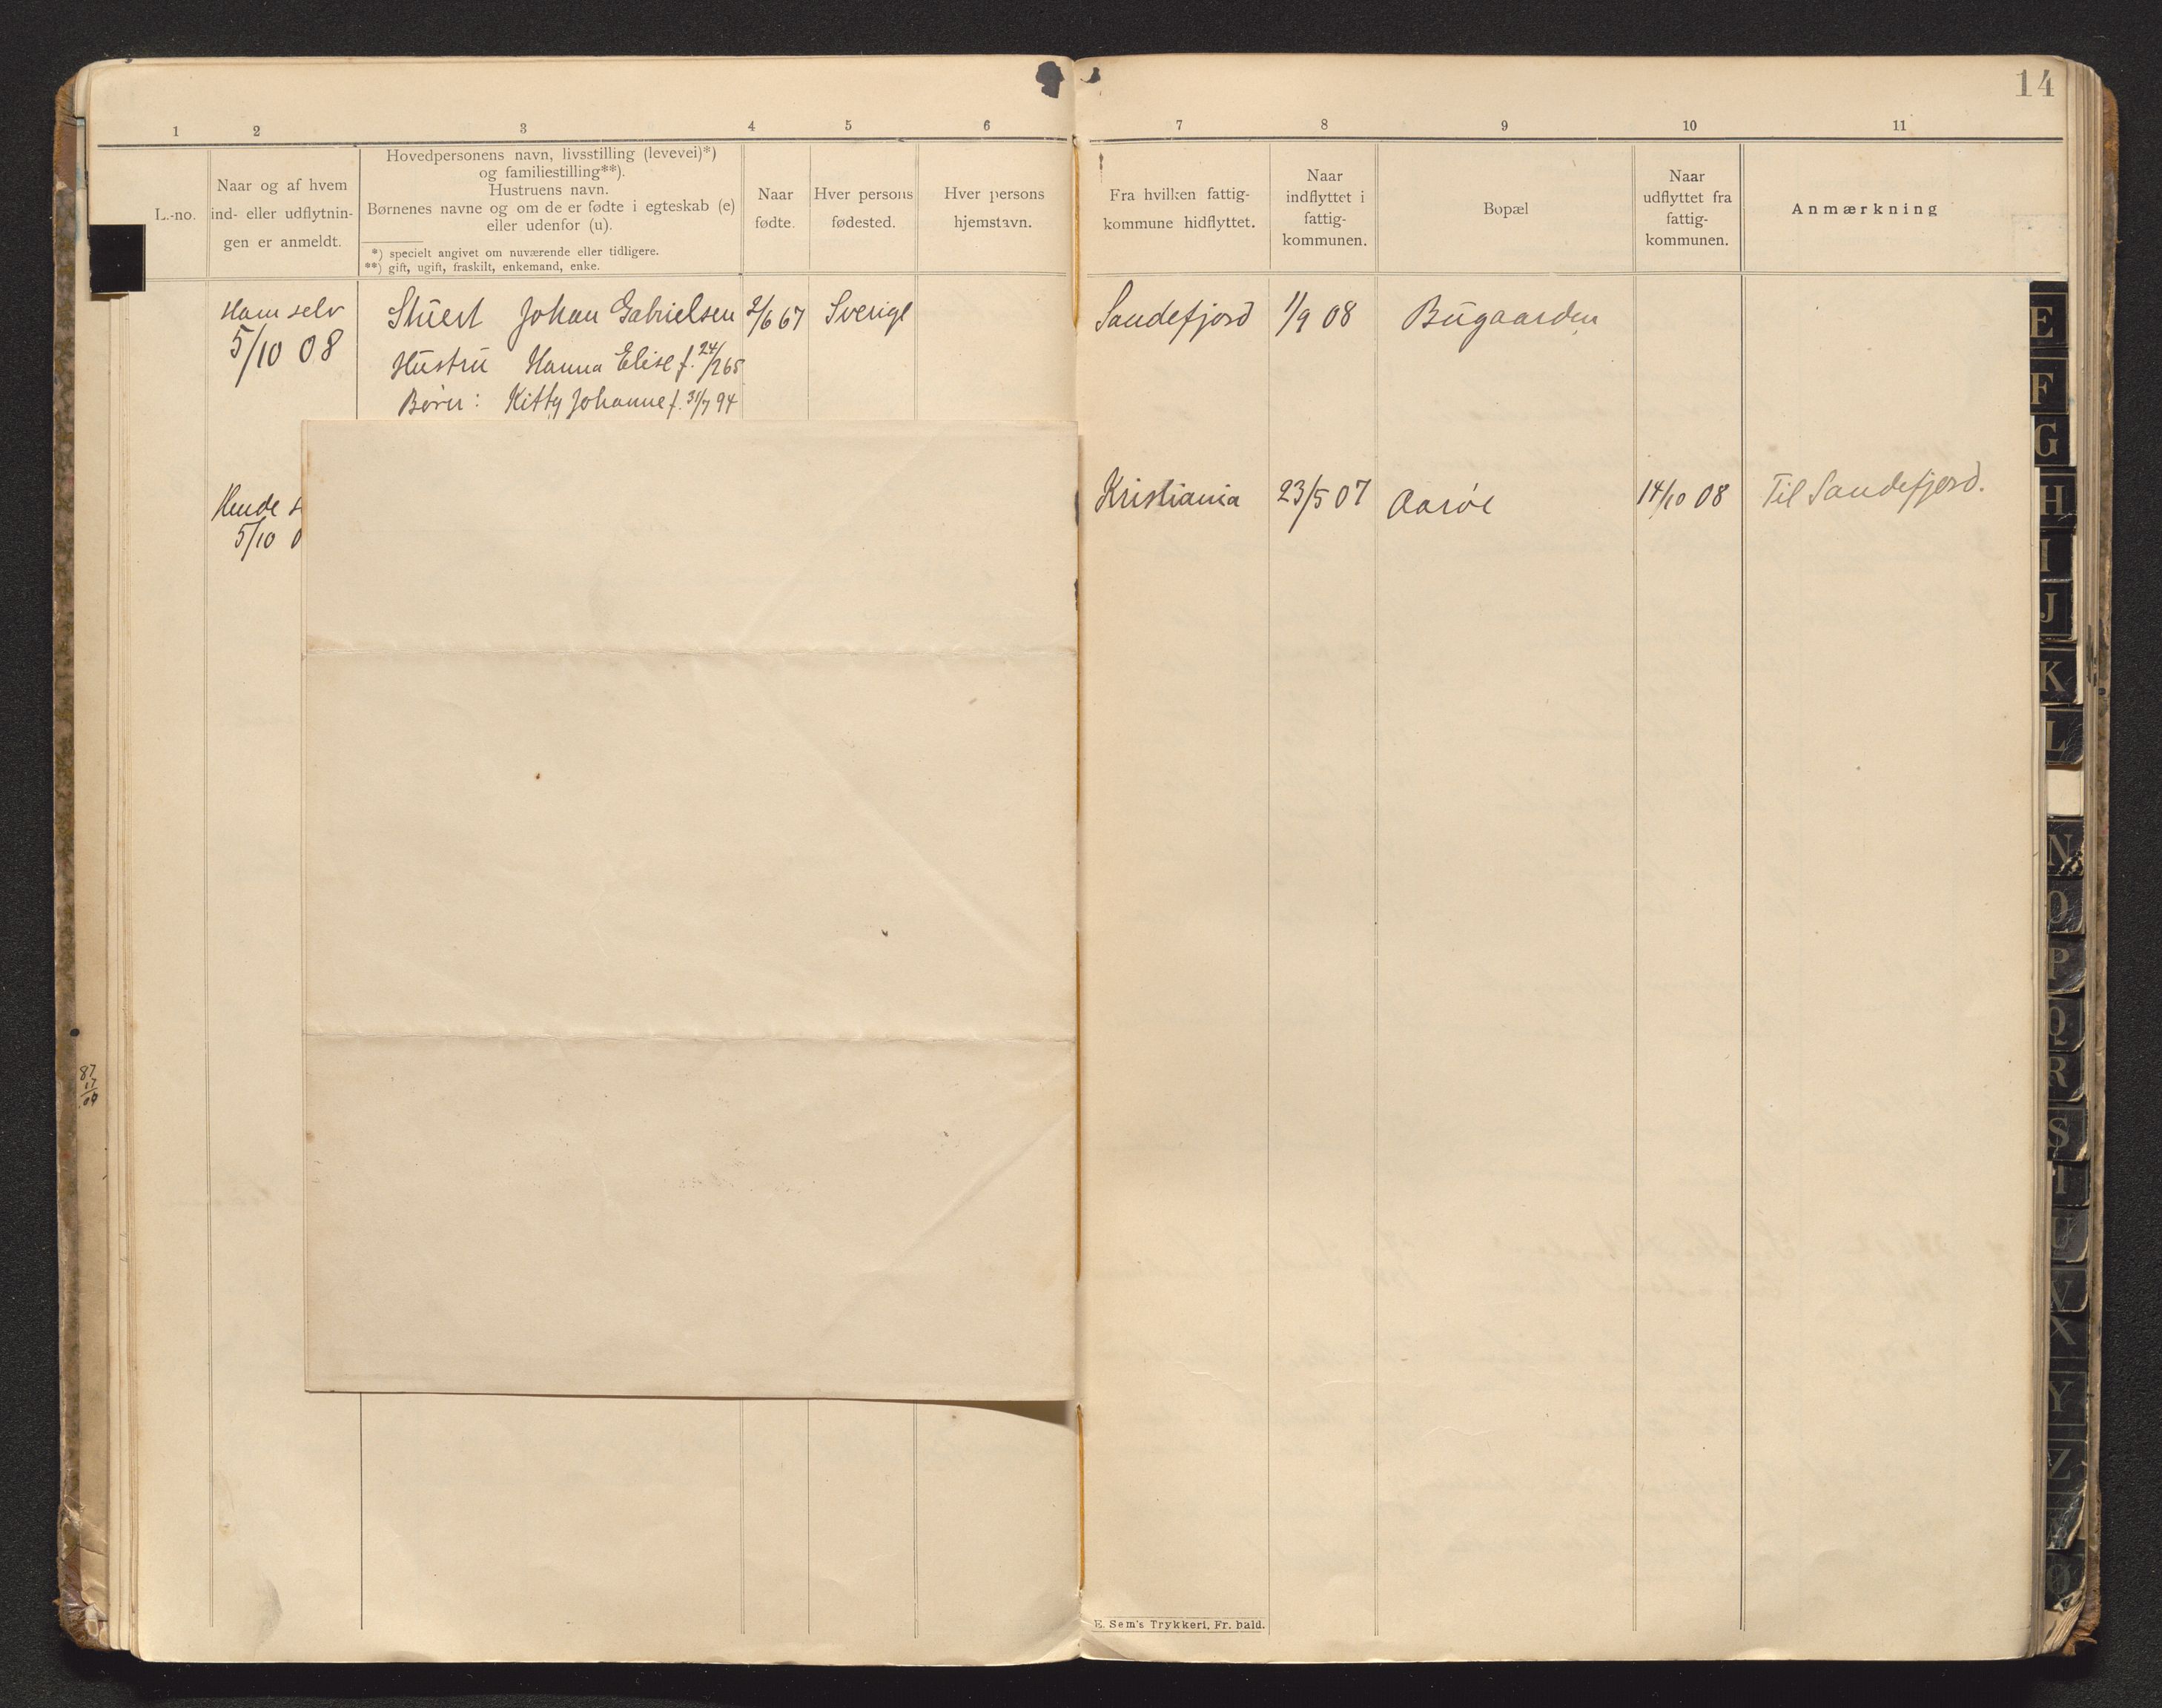 14
1 2 3 4 5 6 7 8 9 10 11
L.-no.
Naar og af hvem
ind- eller udflytnin-
gen er anmeldt.
Hovedpersonens navn, livsstilling (levevei)*)
og familiestilling**).
Hustruens navn.
Børnenes navne og om de er fødte i egteskab (e)
eller udenfor (u).
*) specielt angivet om nuværende eller tidligere.
**) gift, ugift, fraskilt, enkemand, enke.
Naar
fødte.
Hver persons
fødested.
Hver persons
hjemstavn.
Fra hvilken fattig-
kommune hidflyttet.
Naar
indflyttet i
fattig-
kommunen.
Bopæl
Naar
udflyttet fra
fattig-
kommunen.
Anmærkning
Ham selv Johan Gabrielsen 2/6 67 Sverige Sandefjord 1/9 08 Bugaarden
5/10 08
Hustru Hanna Elise f. 24/2 65
Børn: Kitty Johanne f. 31/7 94
Hende s Kristiania 23/5 07 Aarøe 14/10 08 Til Sandefjord.
5/10 0
87
17
E. Sem's Trykkeri, Fr. hald.
E
F
G
H
I
J
K
L
N
O
P
Q
R
S
T
U
V
X
Y
Z
Ø